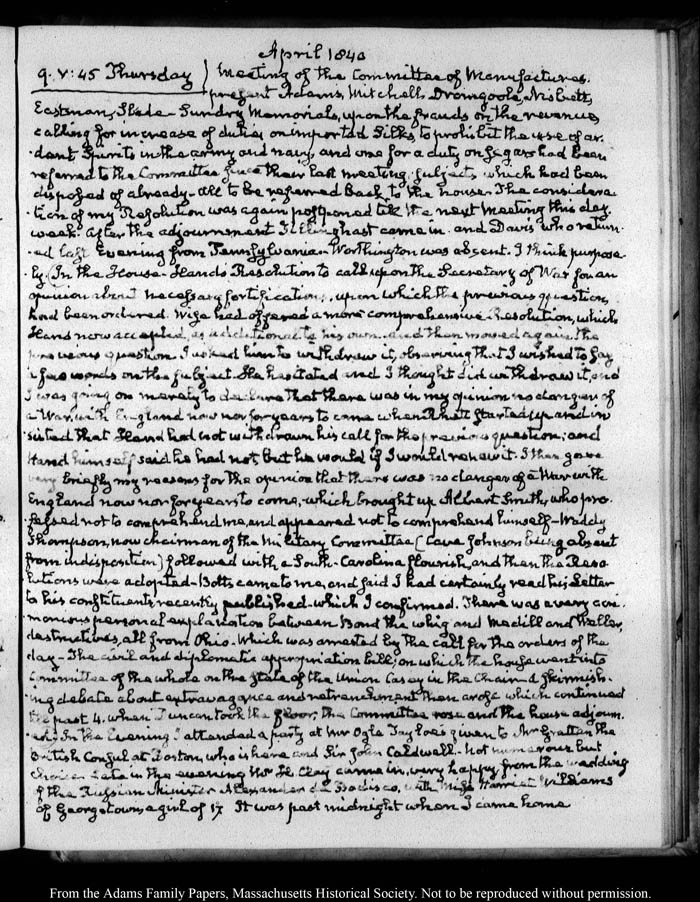 April 1840
9. V:45 Thursday) Meeting of the Committee of Manufactures.
present Adams, Mitchell, Dromgoole, Nisbett,
Eastman, Slade - Sundry Memorials, upon the frauds on the revenue,
calling for increase of duties on imported Silks, to prohibit the use of ar-
-dent Spirits in the army and navy, and one for a duty on Segars had been
referred to the Committee since their last meeting. Subjects which had been
disposed of already - all to be referred back to the house - The considera
-tion of my Resolution was again postponed till the next meeting this day
week. After the adjournment Tillinghast came in. and Davis who return-
-ed last Evening from Pennsylvania - Worthington was absent. I think purpose-
-ly. In the House - Hand's Resolution to call upon the Secretary of War for an
opinion about necessary fortifications, upon which the previous question,
had been ordered. Wise had offered a more comprehensive Resolution, which
Hand now accepted, as additional to his own. and then moved again the
previous question. I asked him to withdraw it, observing that I wished to say
a few words on the subject. He hesitated and I thought did withdraw it, and
I was going on merely to declare that there was in my opinion no danger of
a War with England now nor for years to come when Rhett started up and in
sisted that Hand had not withdrawn his call for the previous question, and
Hand himself said he had not, but he would if I would renew it. I then gave
very briefly my reasons for the opinion that there was no danger of a War with
England now nor for years to come, which brought up Albert Smith, who pro-
-fessed not to comprehend me, and appeared not to comprehend himself - Waddy
Thompson, now chairman of the Military Committee (Cave Johnson being absent
from indisposition) followed with a South-Carolina flourish, and then the Reso
-lutions were adopted - Botts came to me, and said I had certainly read his Letter
to his constituents recently published - which I confirmed. There was a very acri-
-monious personal explanation between Bond the whig and Medill and Weller,
destructives, all from Ohio. Which was arrested by the call for the orders of the
day - The civil and diplomatic appropriation bill, on which the house went into
Committee of the whole on the state of the Union Casey in the Chair - A skirmish-
-ing debate about extravagance and retrenchment then arose which continued
till past 4. when Duncan took the floor; the Committee rose and the house adjourn.
-ed. In the Evening I attended a party at Mr Ogle Tayloe's given to Mr Grattan the
British Consul at Boston, who is here and Sir John Caldwell - Not numerous but
choice. Late in the evening Mr H. Clay came in, very happy from the wedding
of the Russian Minister Alexander de Bodisco, with Miss Harriet Williams
of Georgetown, a girl of 17. It was past midnight when I came home
From the Adams Family Papers, Massachusetts Historical Society. Not to be reproduced without permission.